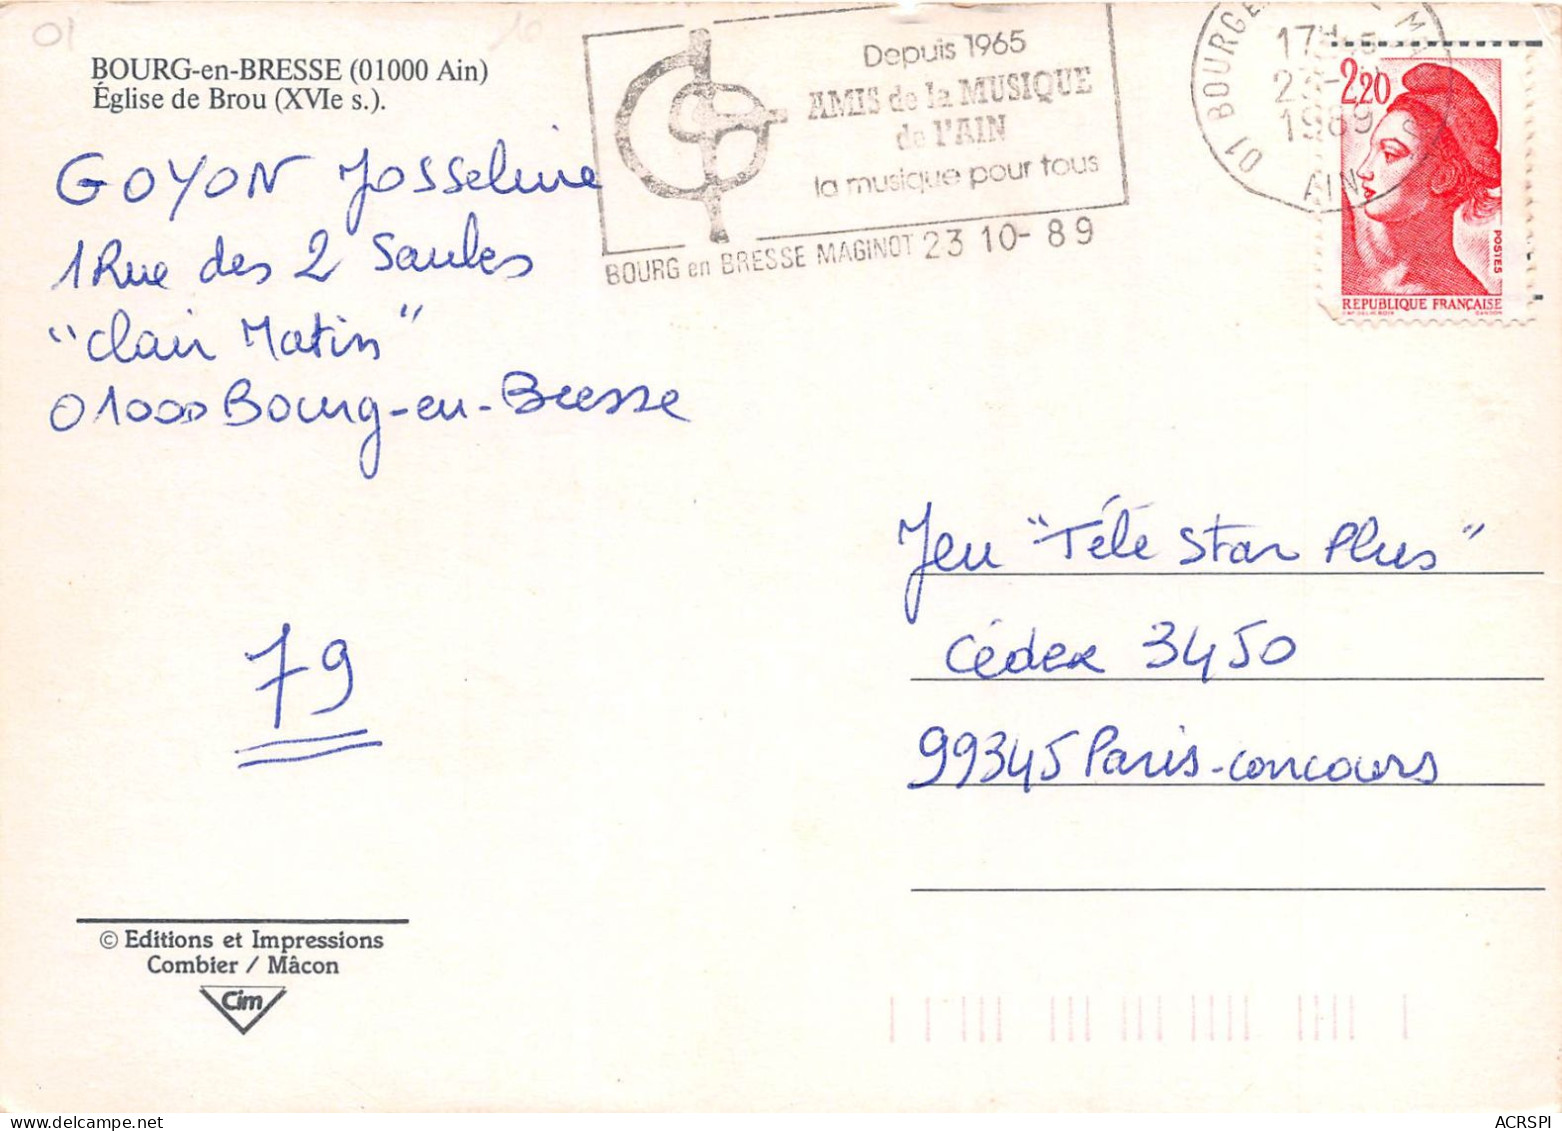 01
BOURG-en-BRESSE (01000 Ain)
Église de Brou (XVIe s.).
GOYON Josseline
1 Rue des 2 Saules
"Clair Matin"
01000 Bourg-en-Bresse
Depuis 1965
AMIS de la MUSIQUE
de l'AIN
la musique pour tous
BOURG en BRESSE MAGINOT 23 10-89
01 BOURG
17H
23
1989
AIN
2,20
POSTES
REPUBLIQUE FRANÇAISE
GANDON
Jeu "Télé Star Plus"
Cédex 3450
99345 Paris-concours
79
© Editions et Impressions
Combier / Mâcon
Cim
ACRSPI